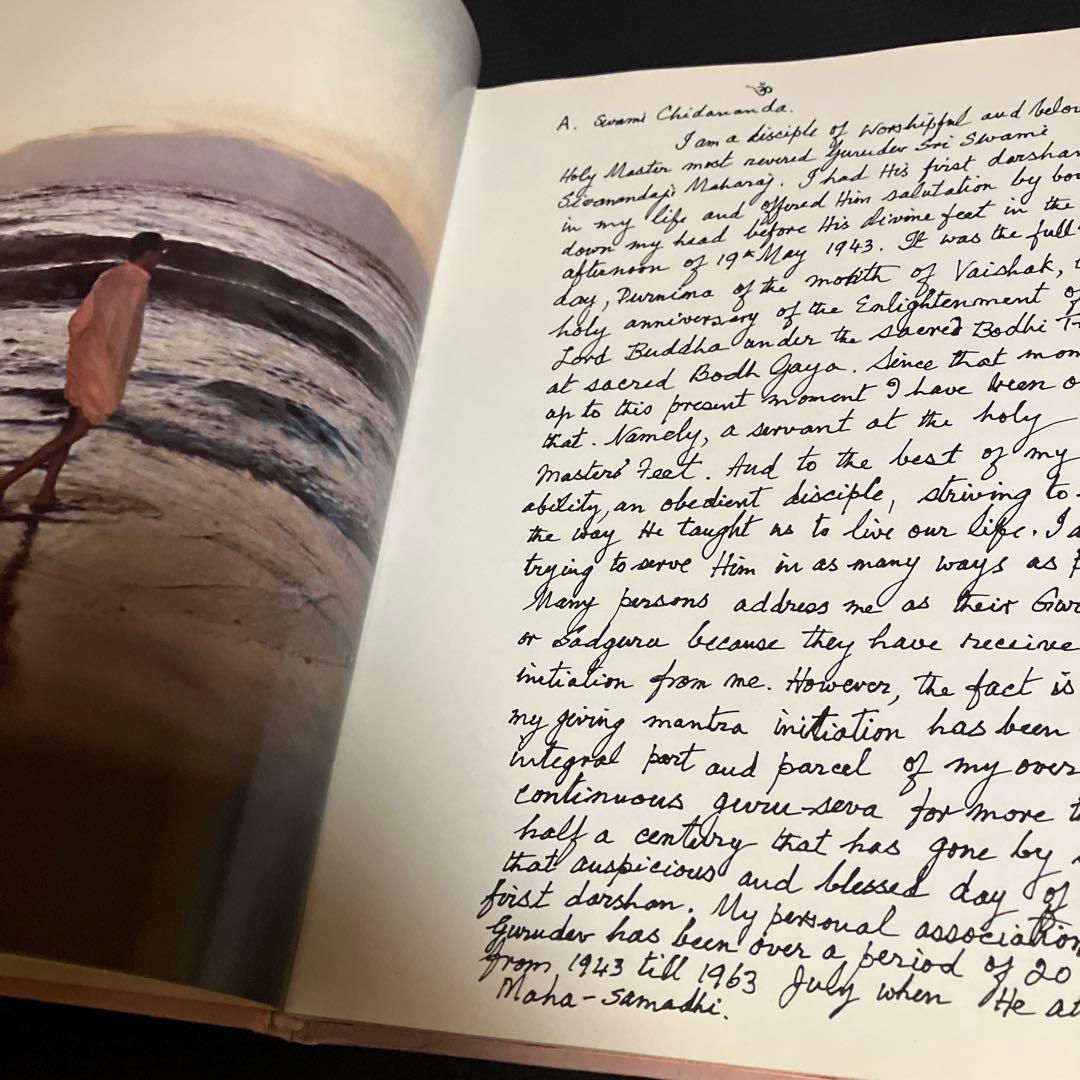 ॐ
A. Swami Chidananda.
I am a disciple of Worshipful and
Holy Master most revered Gurudev Sri Swami
Sivanandaji Maharaj. I had His first darshan
in my life and offered Him salutation by
down my head before His divine feet in the
afternoon of 19th May 1943. It was the full
day, Purnima of the month of Vaishak,
holy anniversary of the Enlightenment of
Lord Buddha under the sacred Bodhi
at sacred Bodh Gaya. Since that
up to this present moment I have been
that. Namely, a servant at the holy
Masters' Feet. And to the best of my
ability, an obedient disciple, striving to
the way He taught us to live our life. I
trying to serve Him in as many ways as
Many persons address me as their
or Sadguru because they have receive
initiation from me. However, the fact is
my giving mantra initiation has been
integral part and parcel of my over
continuous guru-seva for more
half a century that has gone by
that auspicious and blessed day of
first darshan. My personal association
Gurudev has been over a period of 20
from 1943 till 1963 July when He
Maha-samadhi.